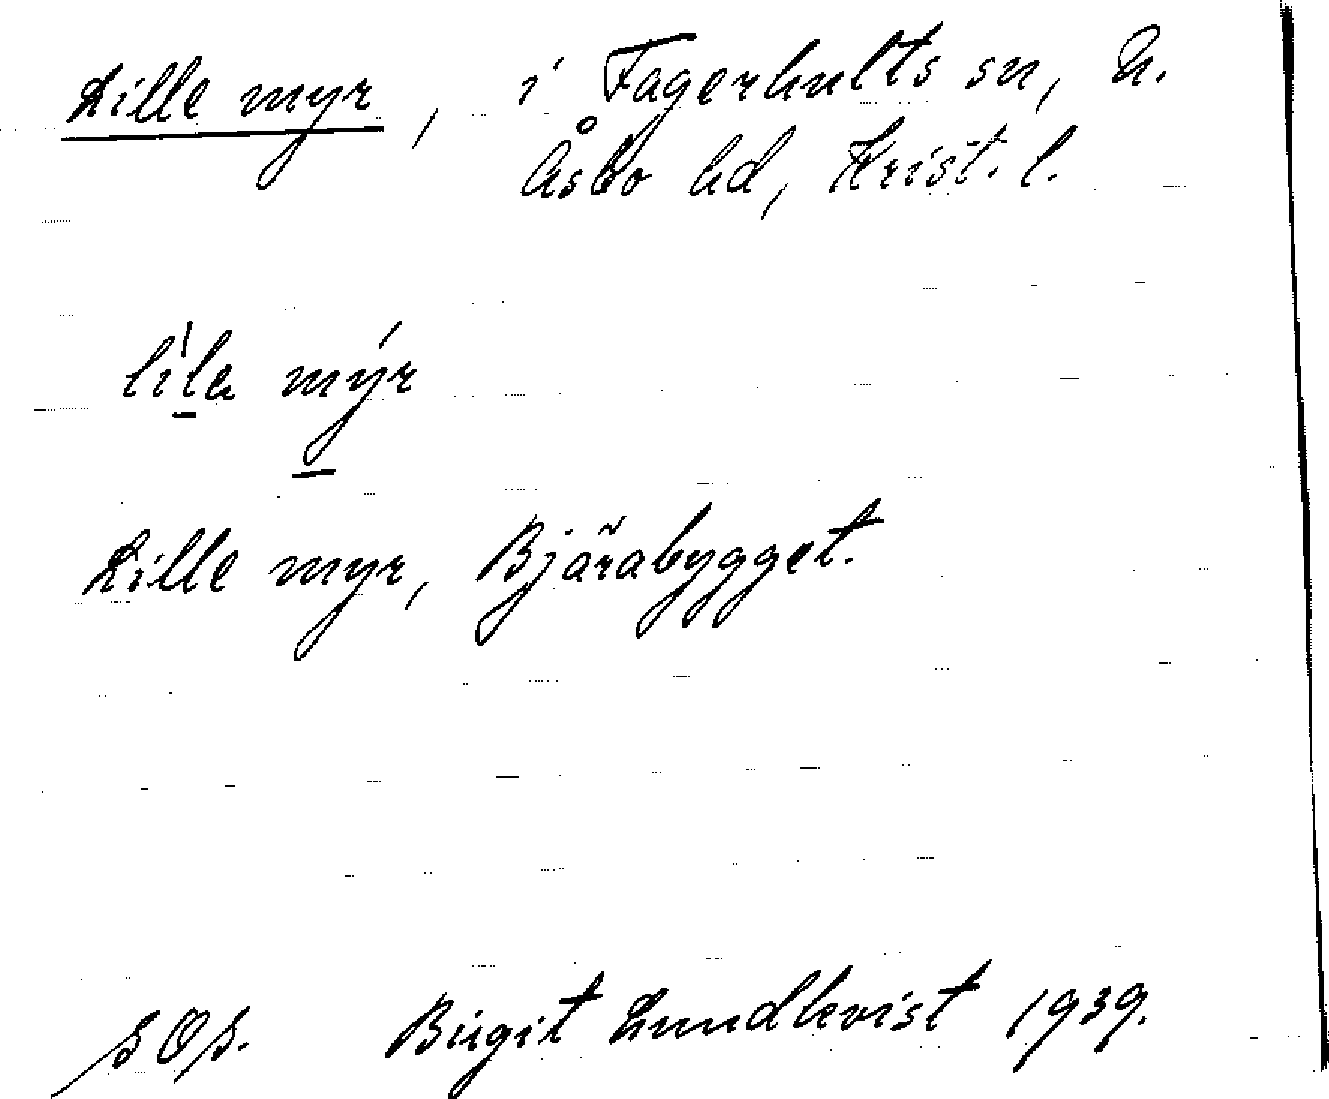 Lille myr, i Fagerhults sn, N.
Åsbo hd, Krist. l.
lila mýr
Lille myr, Bjärabygget.
SOS. Birgit Lundkvist 1939.